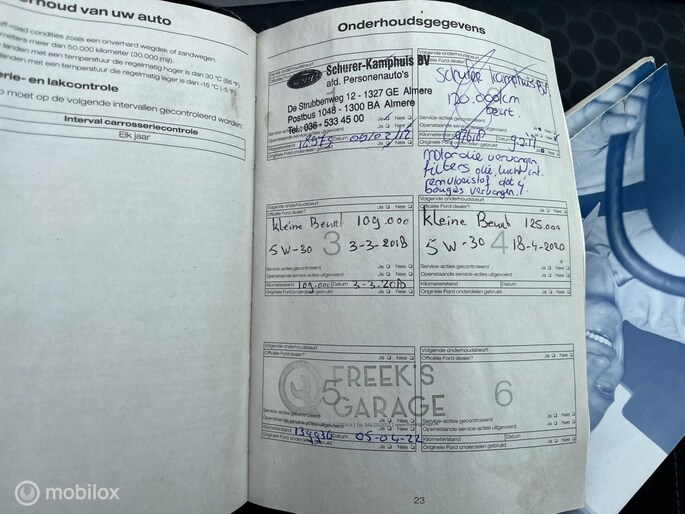 erhoud van uw auto
ff-road condities zoals een onverhard wegdek of zandwegen.
meters meer dan 50.000 kilometer (30.000 mijl)
landen met een temperatuur die regelmatig hoger is dan 30 °C (86 °F)
landen met een temperatuur die regelmatig lager is dan -15 °C (-5 °F).
erie- en lakcontrole
o moet op de volgende intervallen gecontroleerd worden:
Interval carrosseriecontrole
Elk jaar
Onderhoudsgegevens
Schurer-Kamphuis BV
afd. Personenauto's
De Strubbenweg 12 - 1327 GE Almere
Postbus 1048 - 1300 BA Almere
Tel.: 036 - 533 45 00
Kamphuis BV
120.000km
beurt
Motorolie vervangen
filters olie, lucht, int.
remvloeistof dot 4
bougies vervangen.
Volgende onderhoudsbeurt
Officiële Ford dealer? Ja Nee
Kleine Beurt 109.000
5W-30 3 3-3-2018
Service-acties gecontroleerd Ja Nee
Openstaande service-acties uitgevoerd Ja Nee
Kilometerstand 109.000 Datum 3-3-2018
Originele Ford onderdelen gebruikt Ja Nee
Volgende onderhoudsbeurt
Officiële Ford dealer? Ja Nee
Kleine Beurt 125.000
5W-30 4 18-4-2020
Service-acties gecontroleerd Ja Nee
Openstaande service-acties uitgevoerd Ja Nee
Kilometerstand Datum
Originele Ford onderdelen gebruikt Ja Nee
Volgende onderhoudsbeurt
Officiële Ford dealer? Ja Nee
5 FREEK'S
GARAGE
Kilometerstand Datum 05-04-22
Originele Ford onderdelen gebruikt Ja Nee
Volgende onderhoudsbeurt
Officiële Ford dealer? Ja Nee
6
Service-acties gecontroleerd Ja Nee
Openstaande service-acties uitgevoerd Ja Nee
Kilometerstand Datum
Originele Ford onderdelen gebruikt Ja Nee
23
mobilox